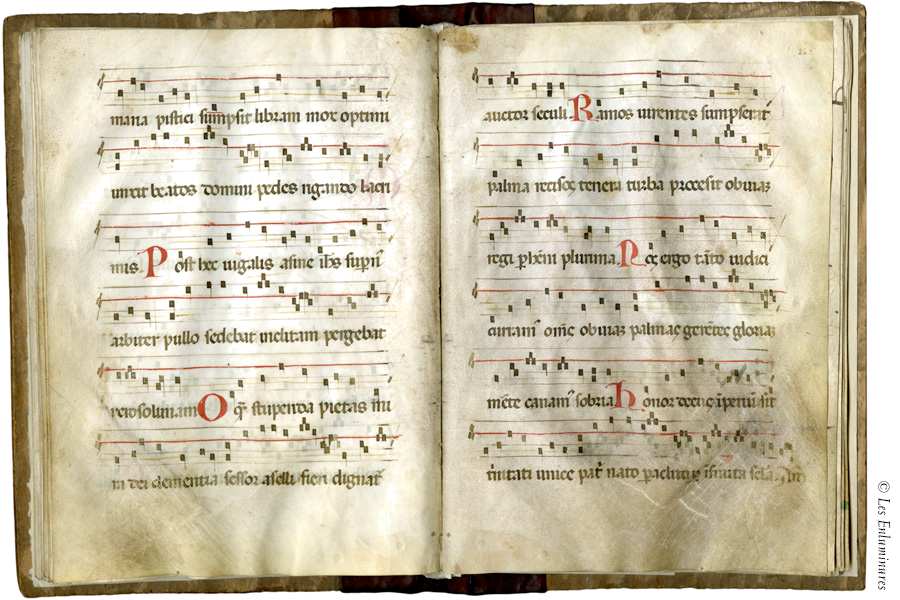 maria pistici sumpsit libram mox optimi
unxit beatos domini pedes rigando lacri
mis. Post hec iugalis asine ihs supni
arbiter pullo sedebat inclitam pergebat
ierosolimam O q stupenda pietas mi
ra dei clementia sessor aselli fieri dignat
auctor seculi. Ramos virentes sumpserat
palma recisos tenera turba processit obviam
regi phenni plurima. Nos ergo tanto iudici
curram oms obviam palmas gerentes gloriam
mente canam sobria honor decus imperium sit
trinitati unice patri nato paclito p infinita scla. am
© Les Enluminures